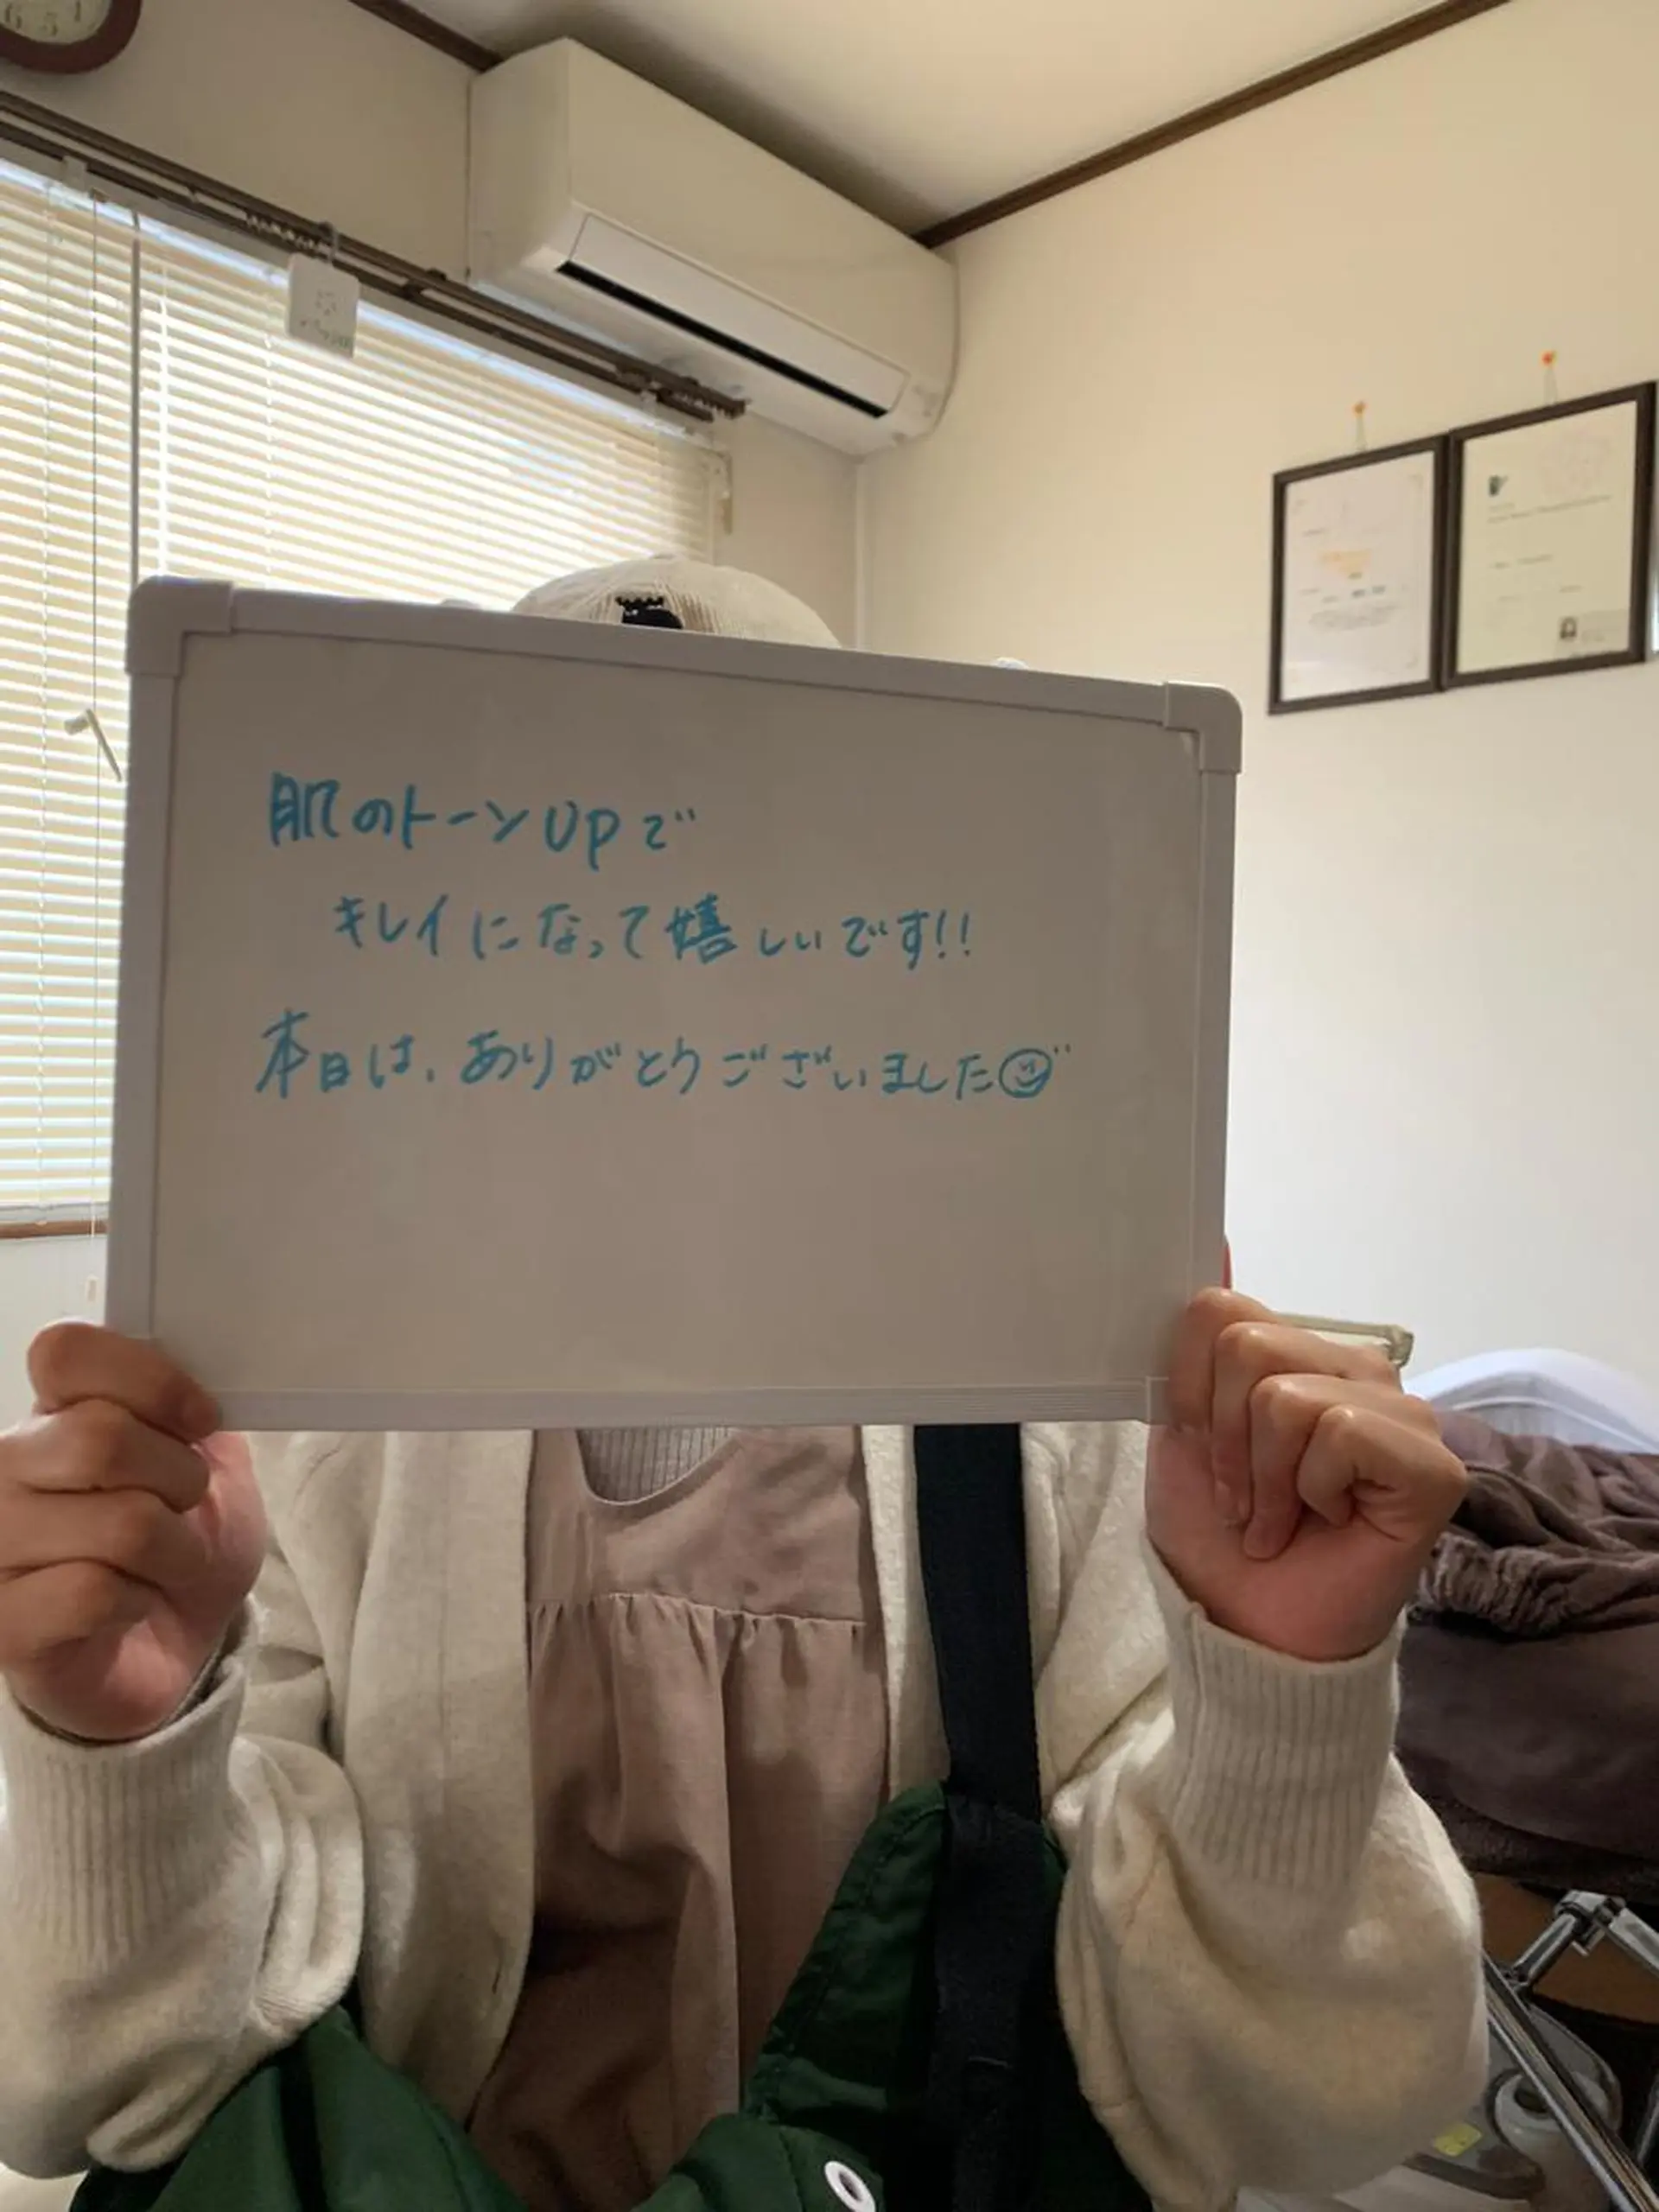 肌のトーンUPで
キレイになって嬉しいです!!
本日は、ありがとうございました